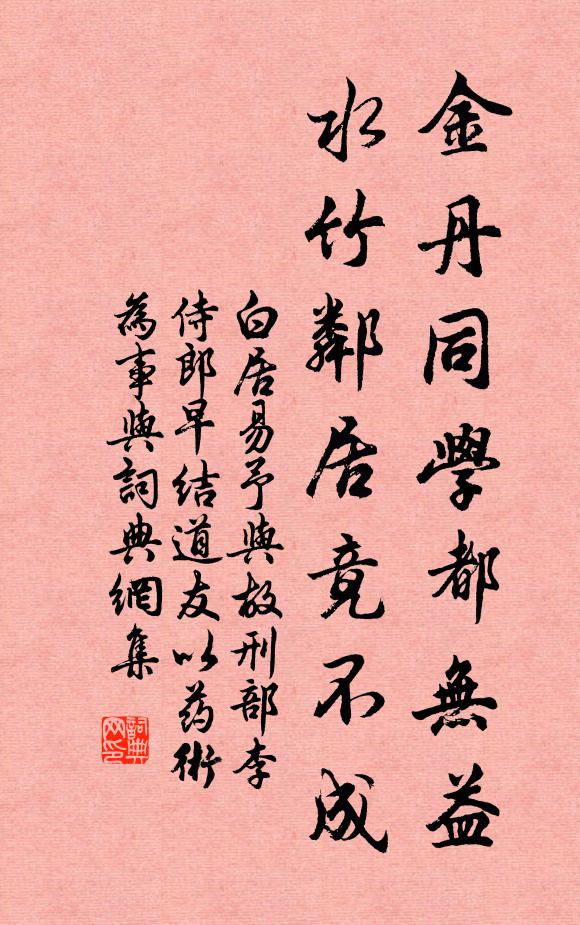 金丹同學都無益
水竹鄰居竟不成
白居易予與故刑部李
侍郎早结道友以药術
為事與詞典網集
詞典网印